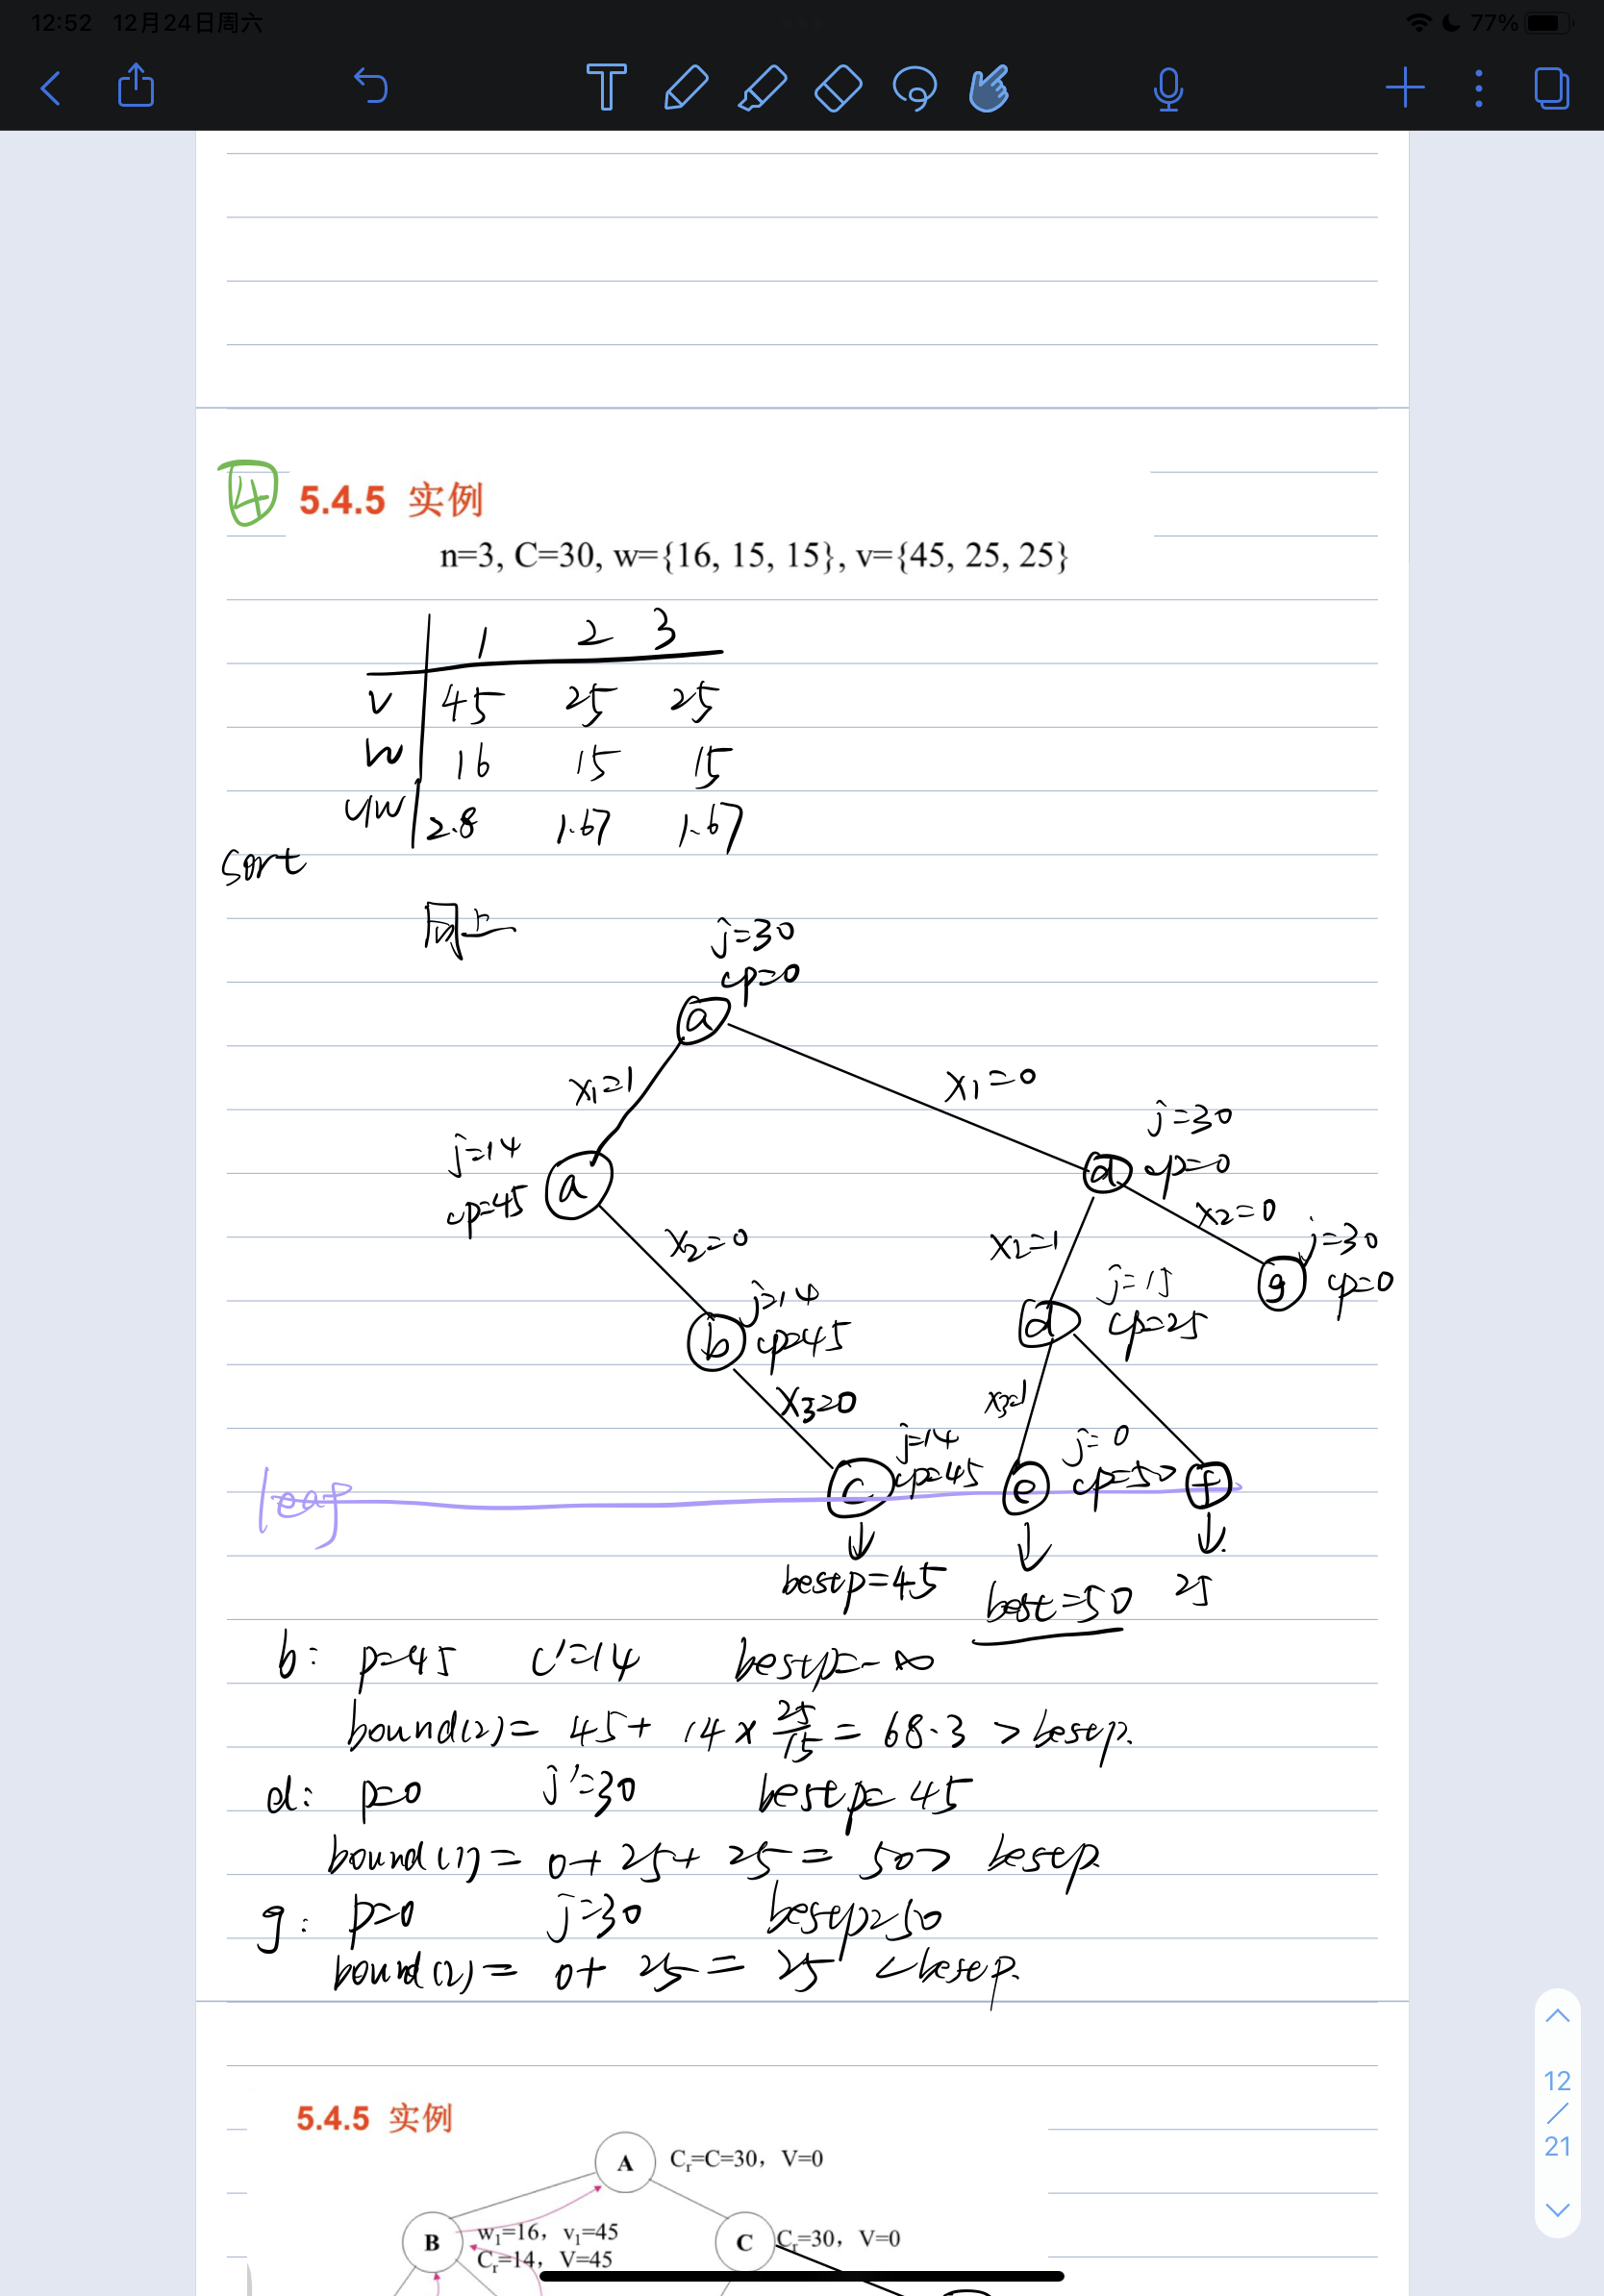 12:52 12月24日周六
77%
4
5.4.5 实例
n=3, C=30, w={16, 15, 15}, v={45, 25, 25}
1 2 3
v 45 25 25
w 16 15 15
v/w 2.8 1.67 1.67
sort
同上
j=30
cp=0
a
x1=1
x1=0
j=30
j=14
a
d
cp=0
cp=45
x2=0
x2=0
x2=1
j=30
g
cp=0
j=14
j=15
b
cp=45
d
cp=25
x3=0
x3=1
j=14
j=0
leaf
c
cp=45
e
cp=50
f
bestp=45
best=50
25
b: p=45 c'=14 bestp=-∞
bound(2)= 45+ 14 × 25/15 = 68.3 > bestp.
d: p=0 j'=30 bestp= 45
bound(1)= 0+ 25+ 25 = 50> bestp
g: p=0 j=30 bestp=50
bound(2)= 0+ 25= 25 <bestp.
5.4.5 实例
A Cr=C=30, V=0
B w1=16, v1=45
Cr=14, V=45
C Cr=30, V=0
12
/
21